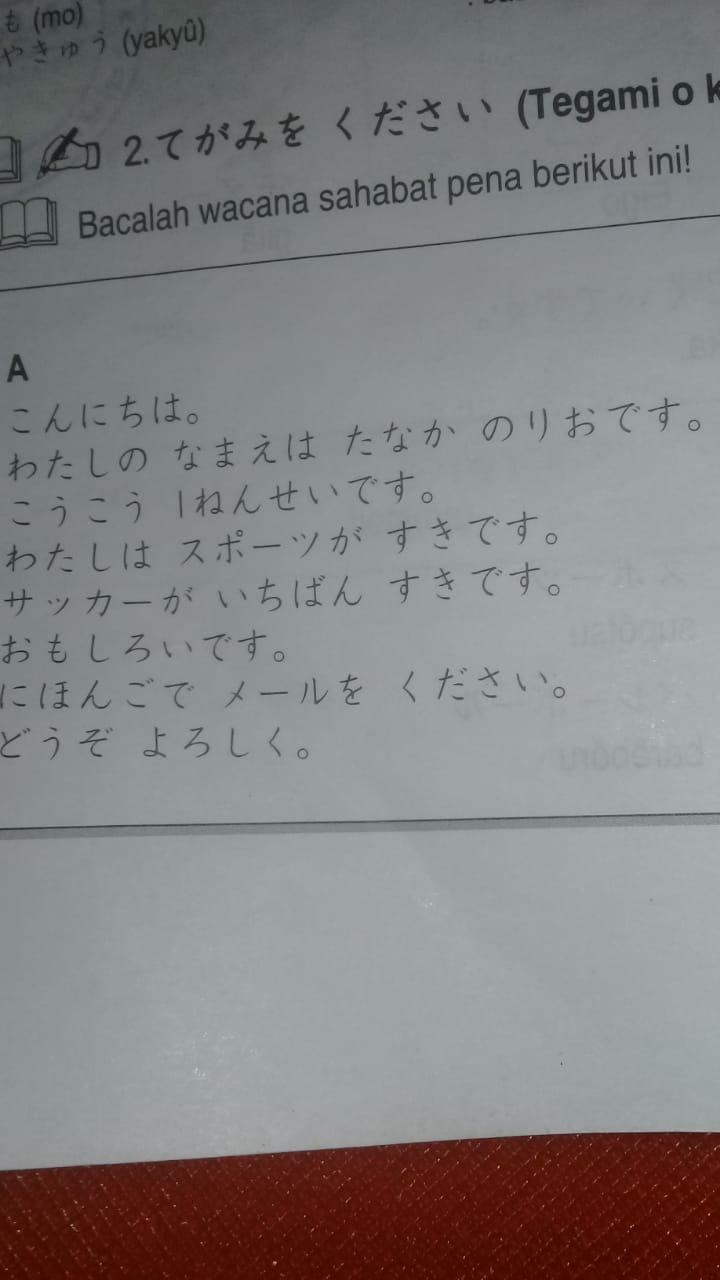 も (mo)
やきゅう (yakyû)
2. てがみを ください (Tegami o
Bacalah wacana sahabat pena berikut ini!
A
こんにちは。
わたしの なまえは たなか のりおです。
こうこう 1ねんせいです。
わたしは スポーツが すきです。
サッカーが いちばん すきです。
おもしろいです。
にほんごで メールを ください。
どうぞ よろしく。